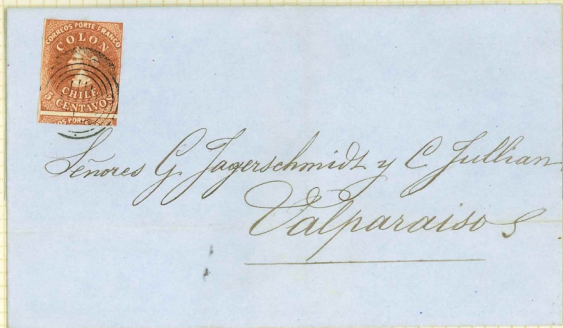 CORREOS PORTE FRANCO
COLON
CHILE
5 CENTAVOS
OS PORTE FRANCO
Señores G. Jagerschmidt y C. Jullian
Valparaiso